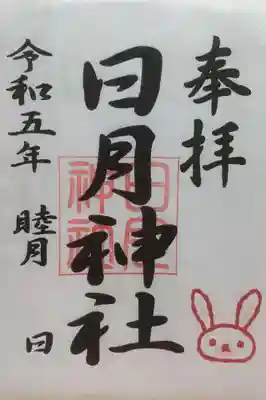 奉拝
日月神社
令和五年 睦月 日
日月神社